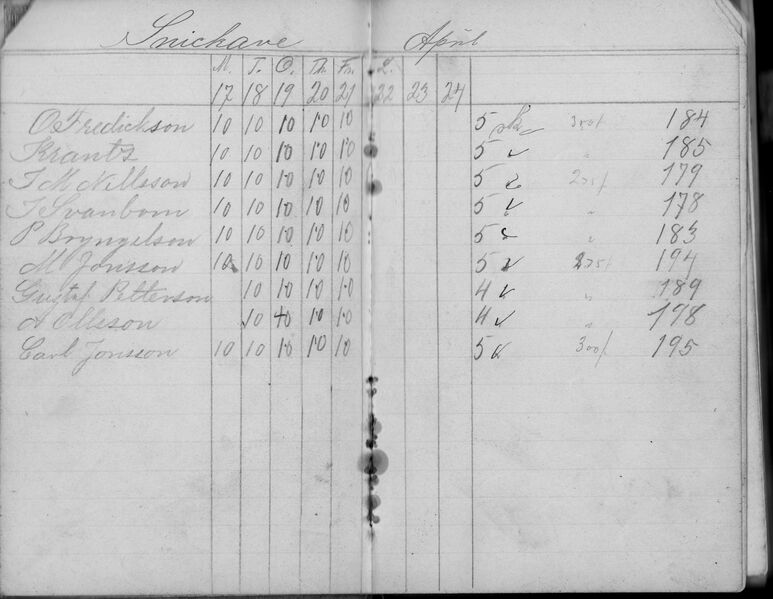 Snickare April
M. T. O. Th. Fr. L.
17 18 19 20 21 22 23 24
O Fredichson 10 10 10 10 10 5 300 184
Krantz 10 10 10 10 10 5 " 185
J M Nillsson 10 10 10 10 10 5 179
J Svanbom 10 10 10 10 10 5 " 178
P Bryngelson 10 10 10 10 10 5 " 183
M Jonsson 10 10 10 10 10 5 194
Gustaf Petterson 10 10 10 10 4 " 189
A Olleson 10 10 10 10 4 " 178
Carl Jonsson 10 10 10 10 10 5 300 195